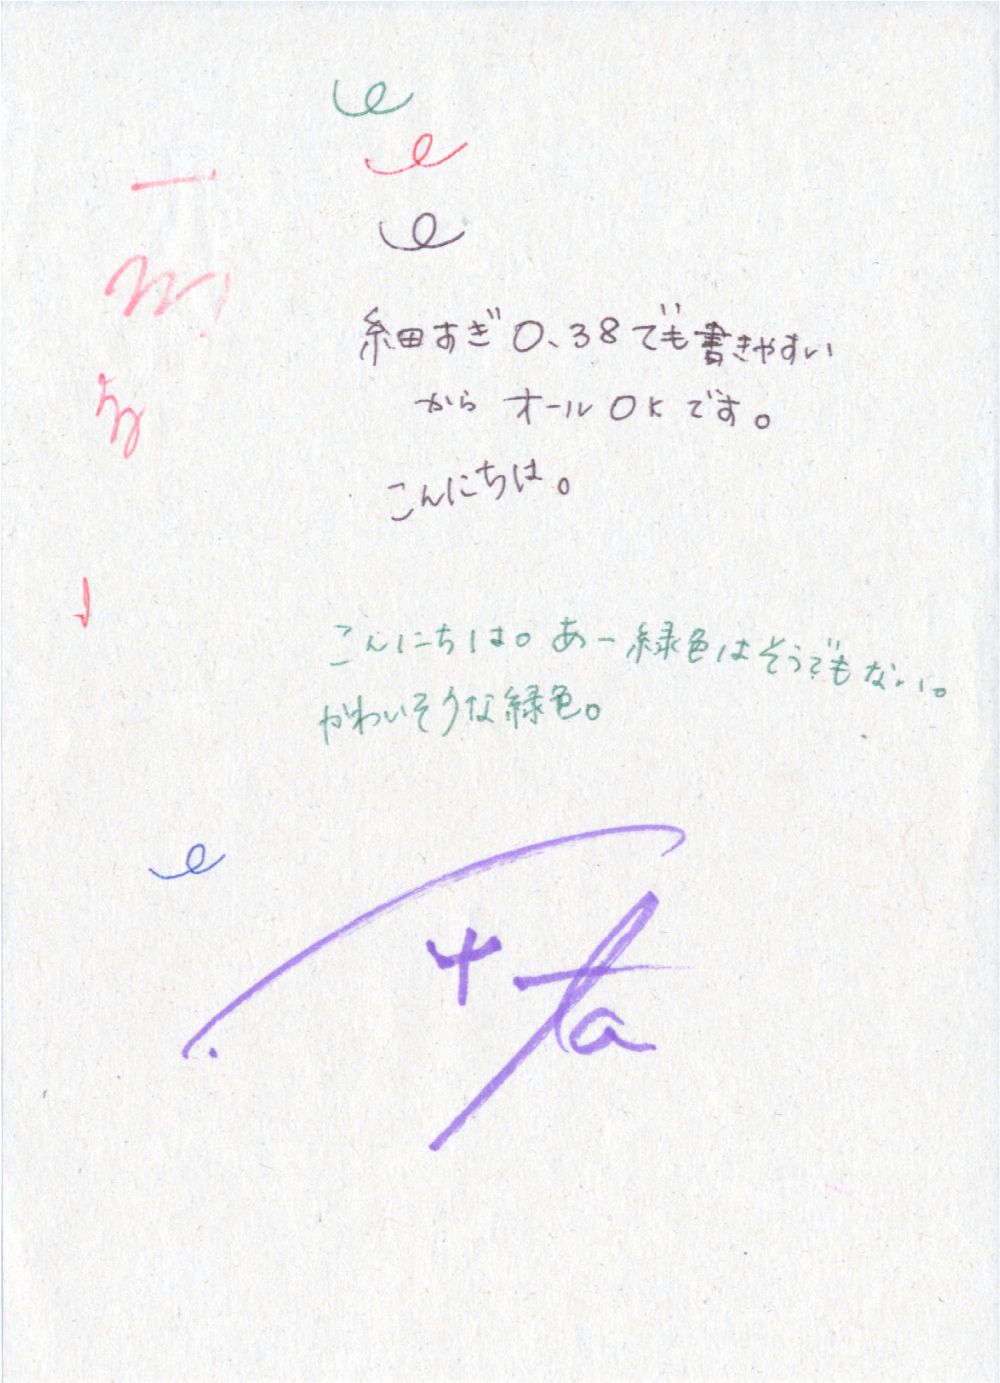 細すぎ0.38でも書きやすい
からオールOKです。
こんにちは。
こんにちは。あー緑色はそうでもない。
かわいそうな緑色。